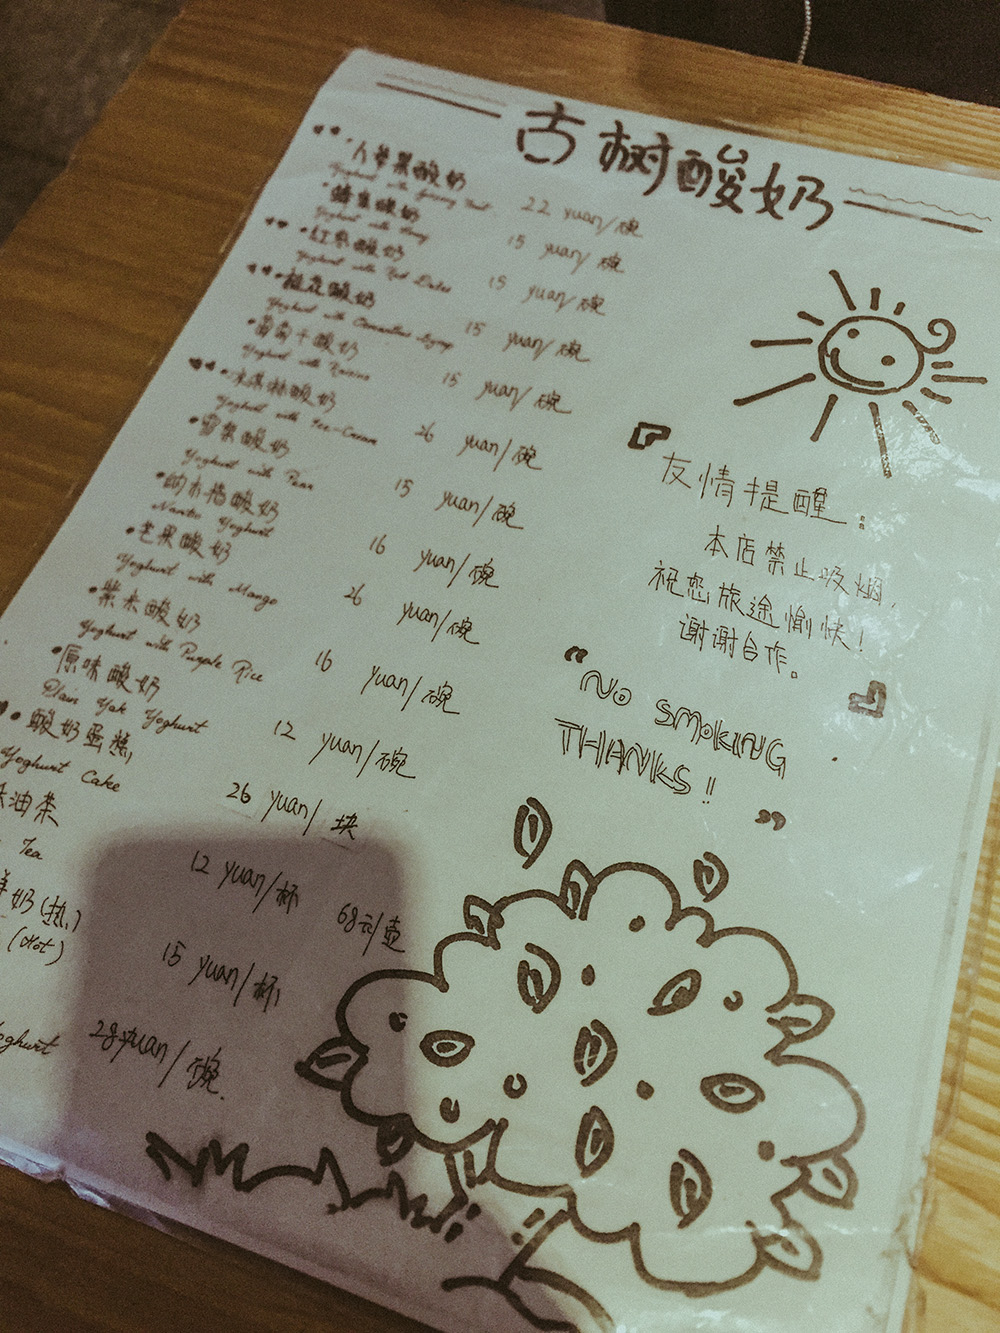 古树酸奶
人参果酸奶
Yoghurt with Ginseng Fruit 22 yuan/碗
蜂蜜酸奶
Yoghurt with Honey 15 yuan/碗
红枣酸奶
Yoghurt with Red Dates 15 yuan/碗
桂花酸奶
Yoghurt with Osmanthus 15 yuan/碗
葡萄干酸奶
Yoghurt with Raisins 15 yuan/碗
冰淇淋酸奶
Yoghurt with Ice-Cream 26 yuan/碗
雪梨酸奶
Yoghurt with Pear 15 yuan/碗
酸奶
Nanto Yoghurt 16 yuan/碗
芒果酸奶
Yoghurt with Mango 26 yuan/碗
紫米酸奶
Yoghurt with Purple Rice 16 yuan/碗
原味酸奶
Plain Yak Yoghurt 12 yuan/碗
酸奶蛋糕
Yoghurt Cake 26 yuan/块
油茶
Tea 12 yuan/杯 68元/壶
奶(热)
(Hot) 15 yuan/杯
oghurt 28 yuan/碗.
友情提醒:
本店禁止吸烟,
祝您旅途愉快!
谢谢合作。
"NO SMOKING
THANKS!!"